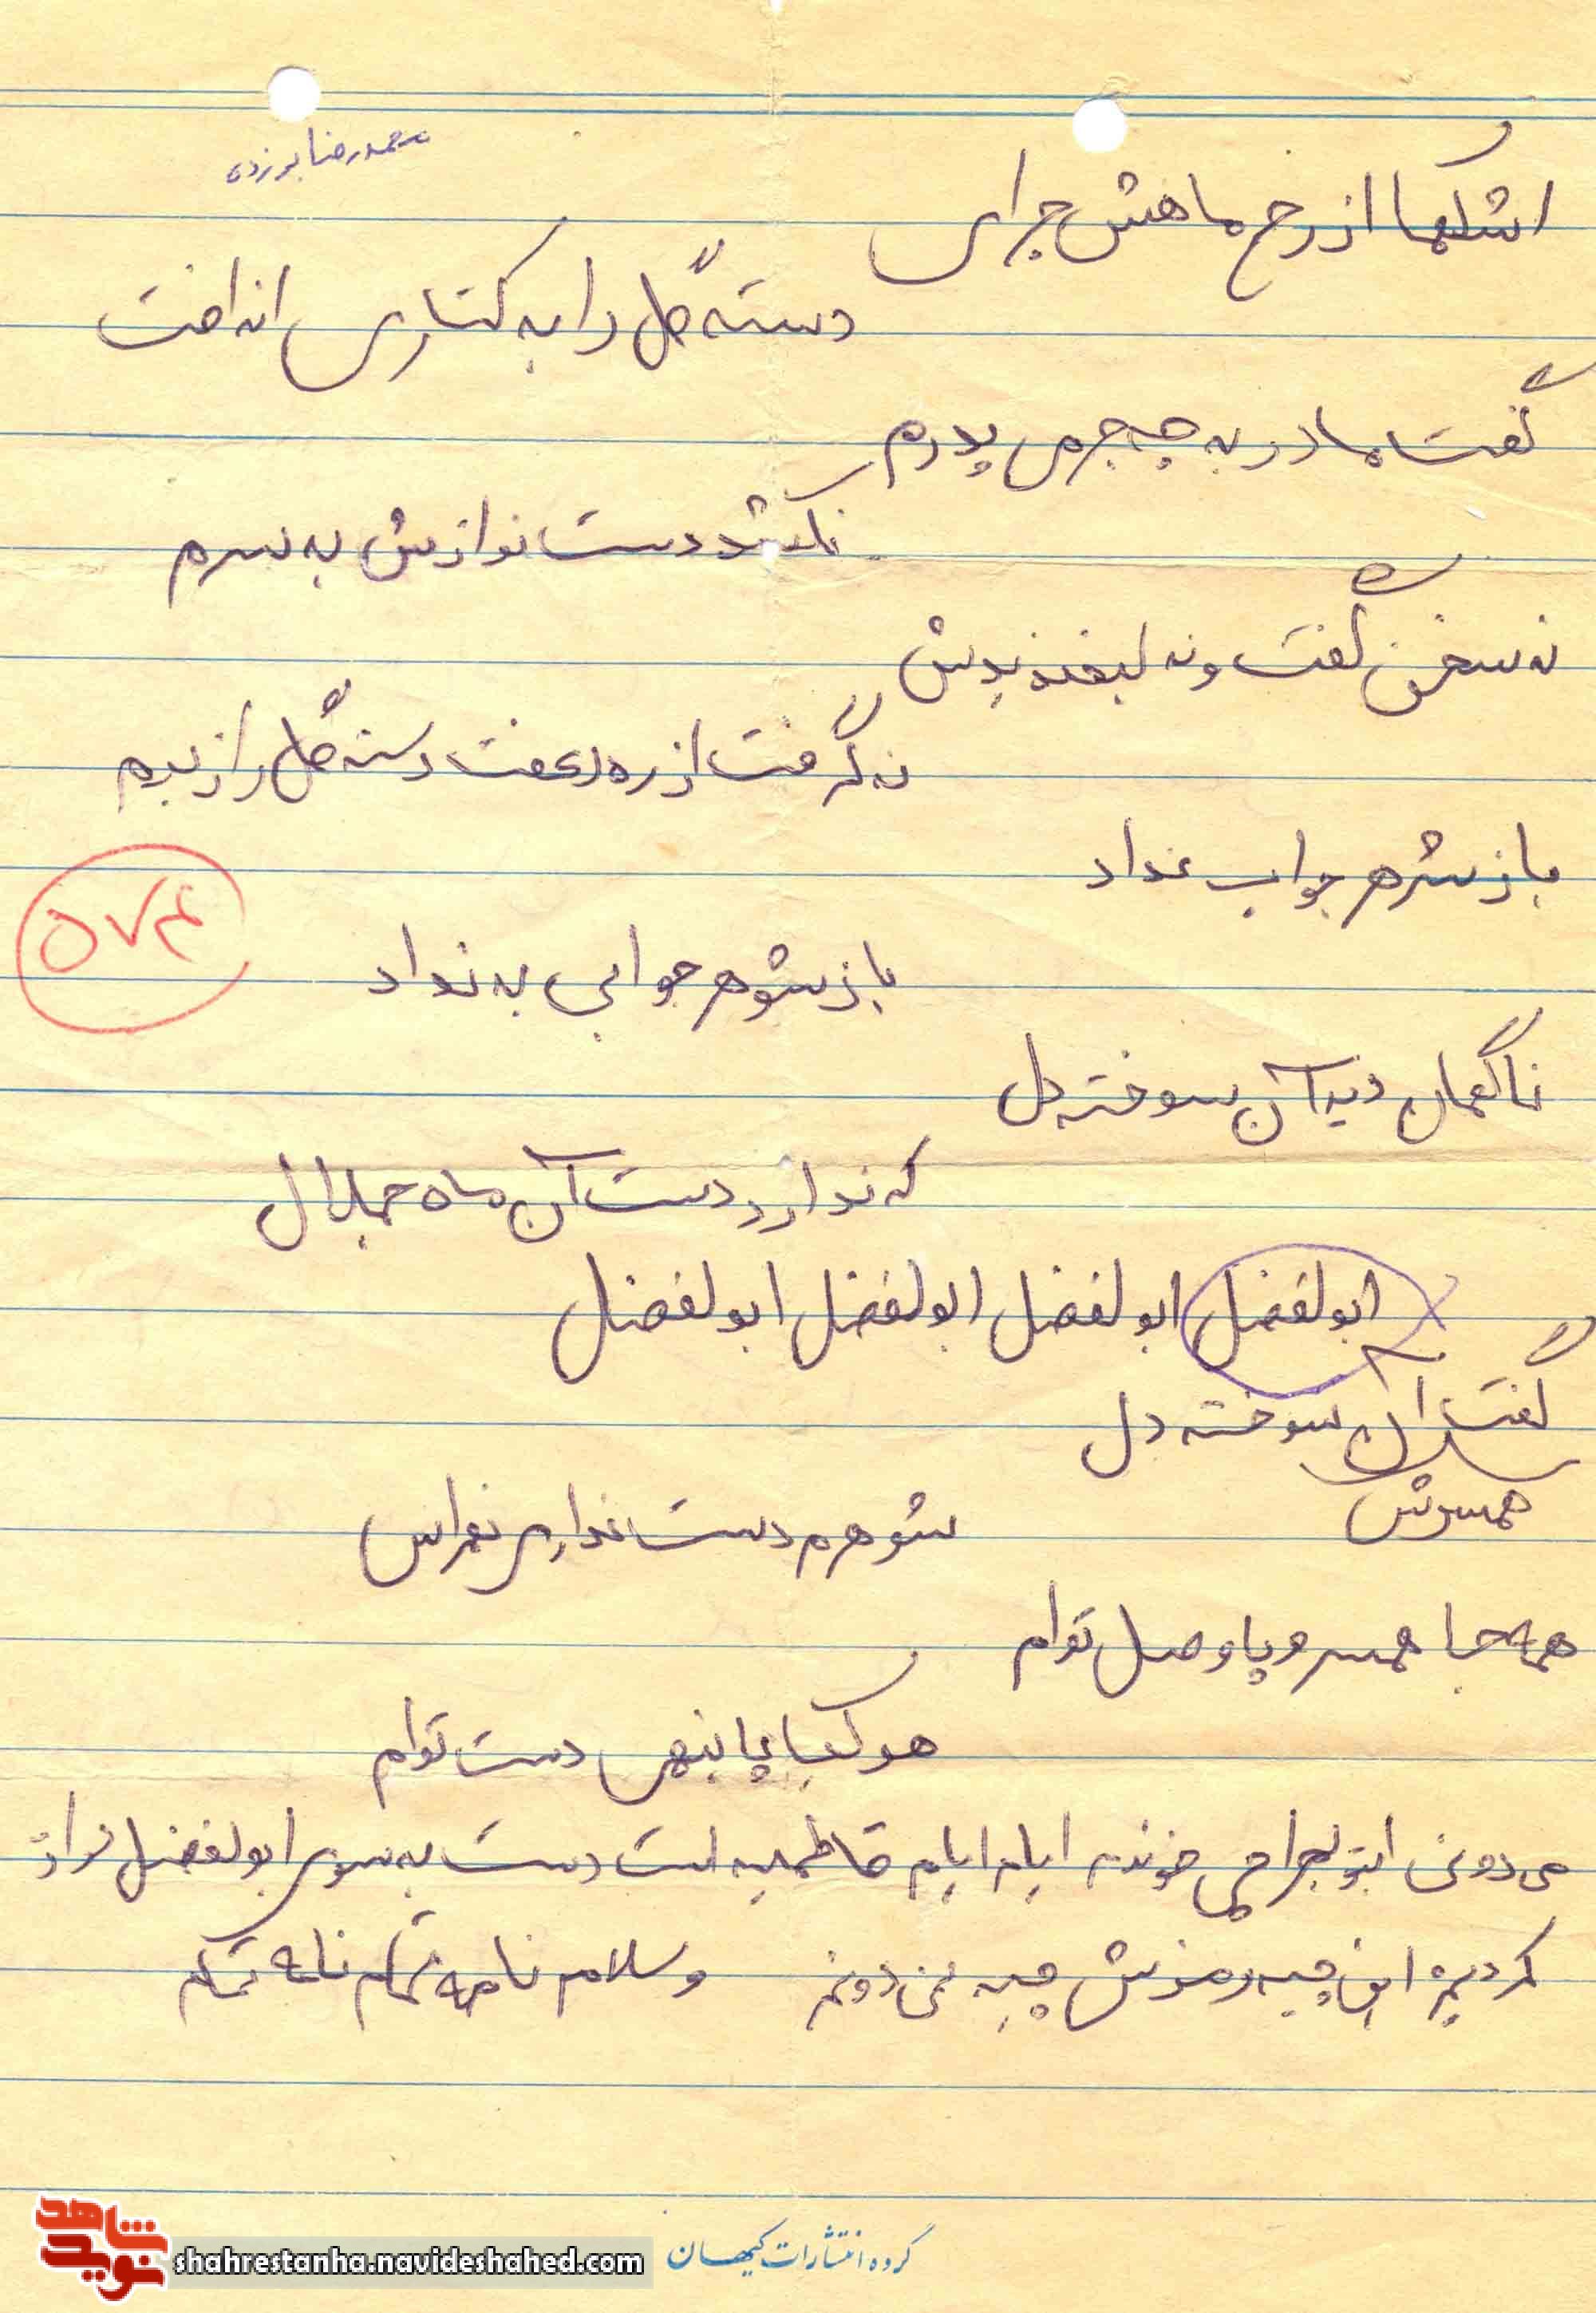 محمدرضا برزدی
اشکها از رخ ماهش جرای
دسته گل را به کناری انداخت
گفت مادر به چه جرمی پدرم
نکشد دست نوازش به سرم
نه سخن گفت و نه لبخند پدش
نه گرفت از ره رعفت دسته گل را زبدم
باز شوهر جواب نداد
۵۷۴
باز شوهر جوابی به نداد
ناگهان دید آن سوخته دل
که ندارد دست آن ماه جلال
ابولفضل ابولفضل ابولفضل ابولفضل
گفت آن سوخته دل
همسرش
شوهرم دست نداری نهراس
همه جا همسر و پا وصل توام
هر کجا پا بنهی دست توام
می دونی اینو کی خونده ایام ایام فاطمیه است دست به سوی ابولفضل دراز
کردیم این چیه رمزش چیه نمی دونم وسلام نامه تمام نامه تمام
گروه انتشارات کیهان
شاهد نوید
shahrestanha.navideshahed.com